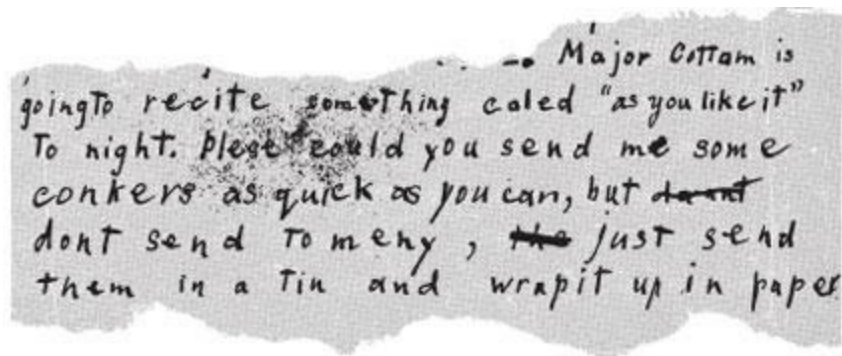 Major Cottam is
going to recite something caled "as you like it"
To night. Plese could you send me some
conkers as quick as you can, but
dont send to meny, just send
them in a tin and wrap it up in paper